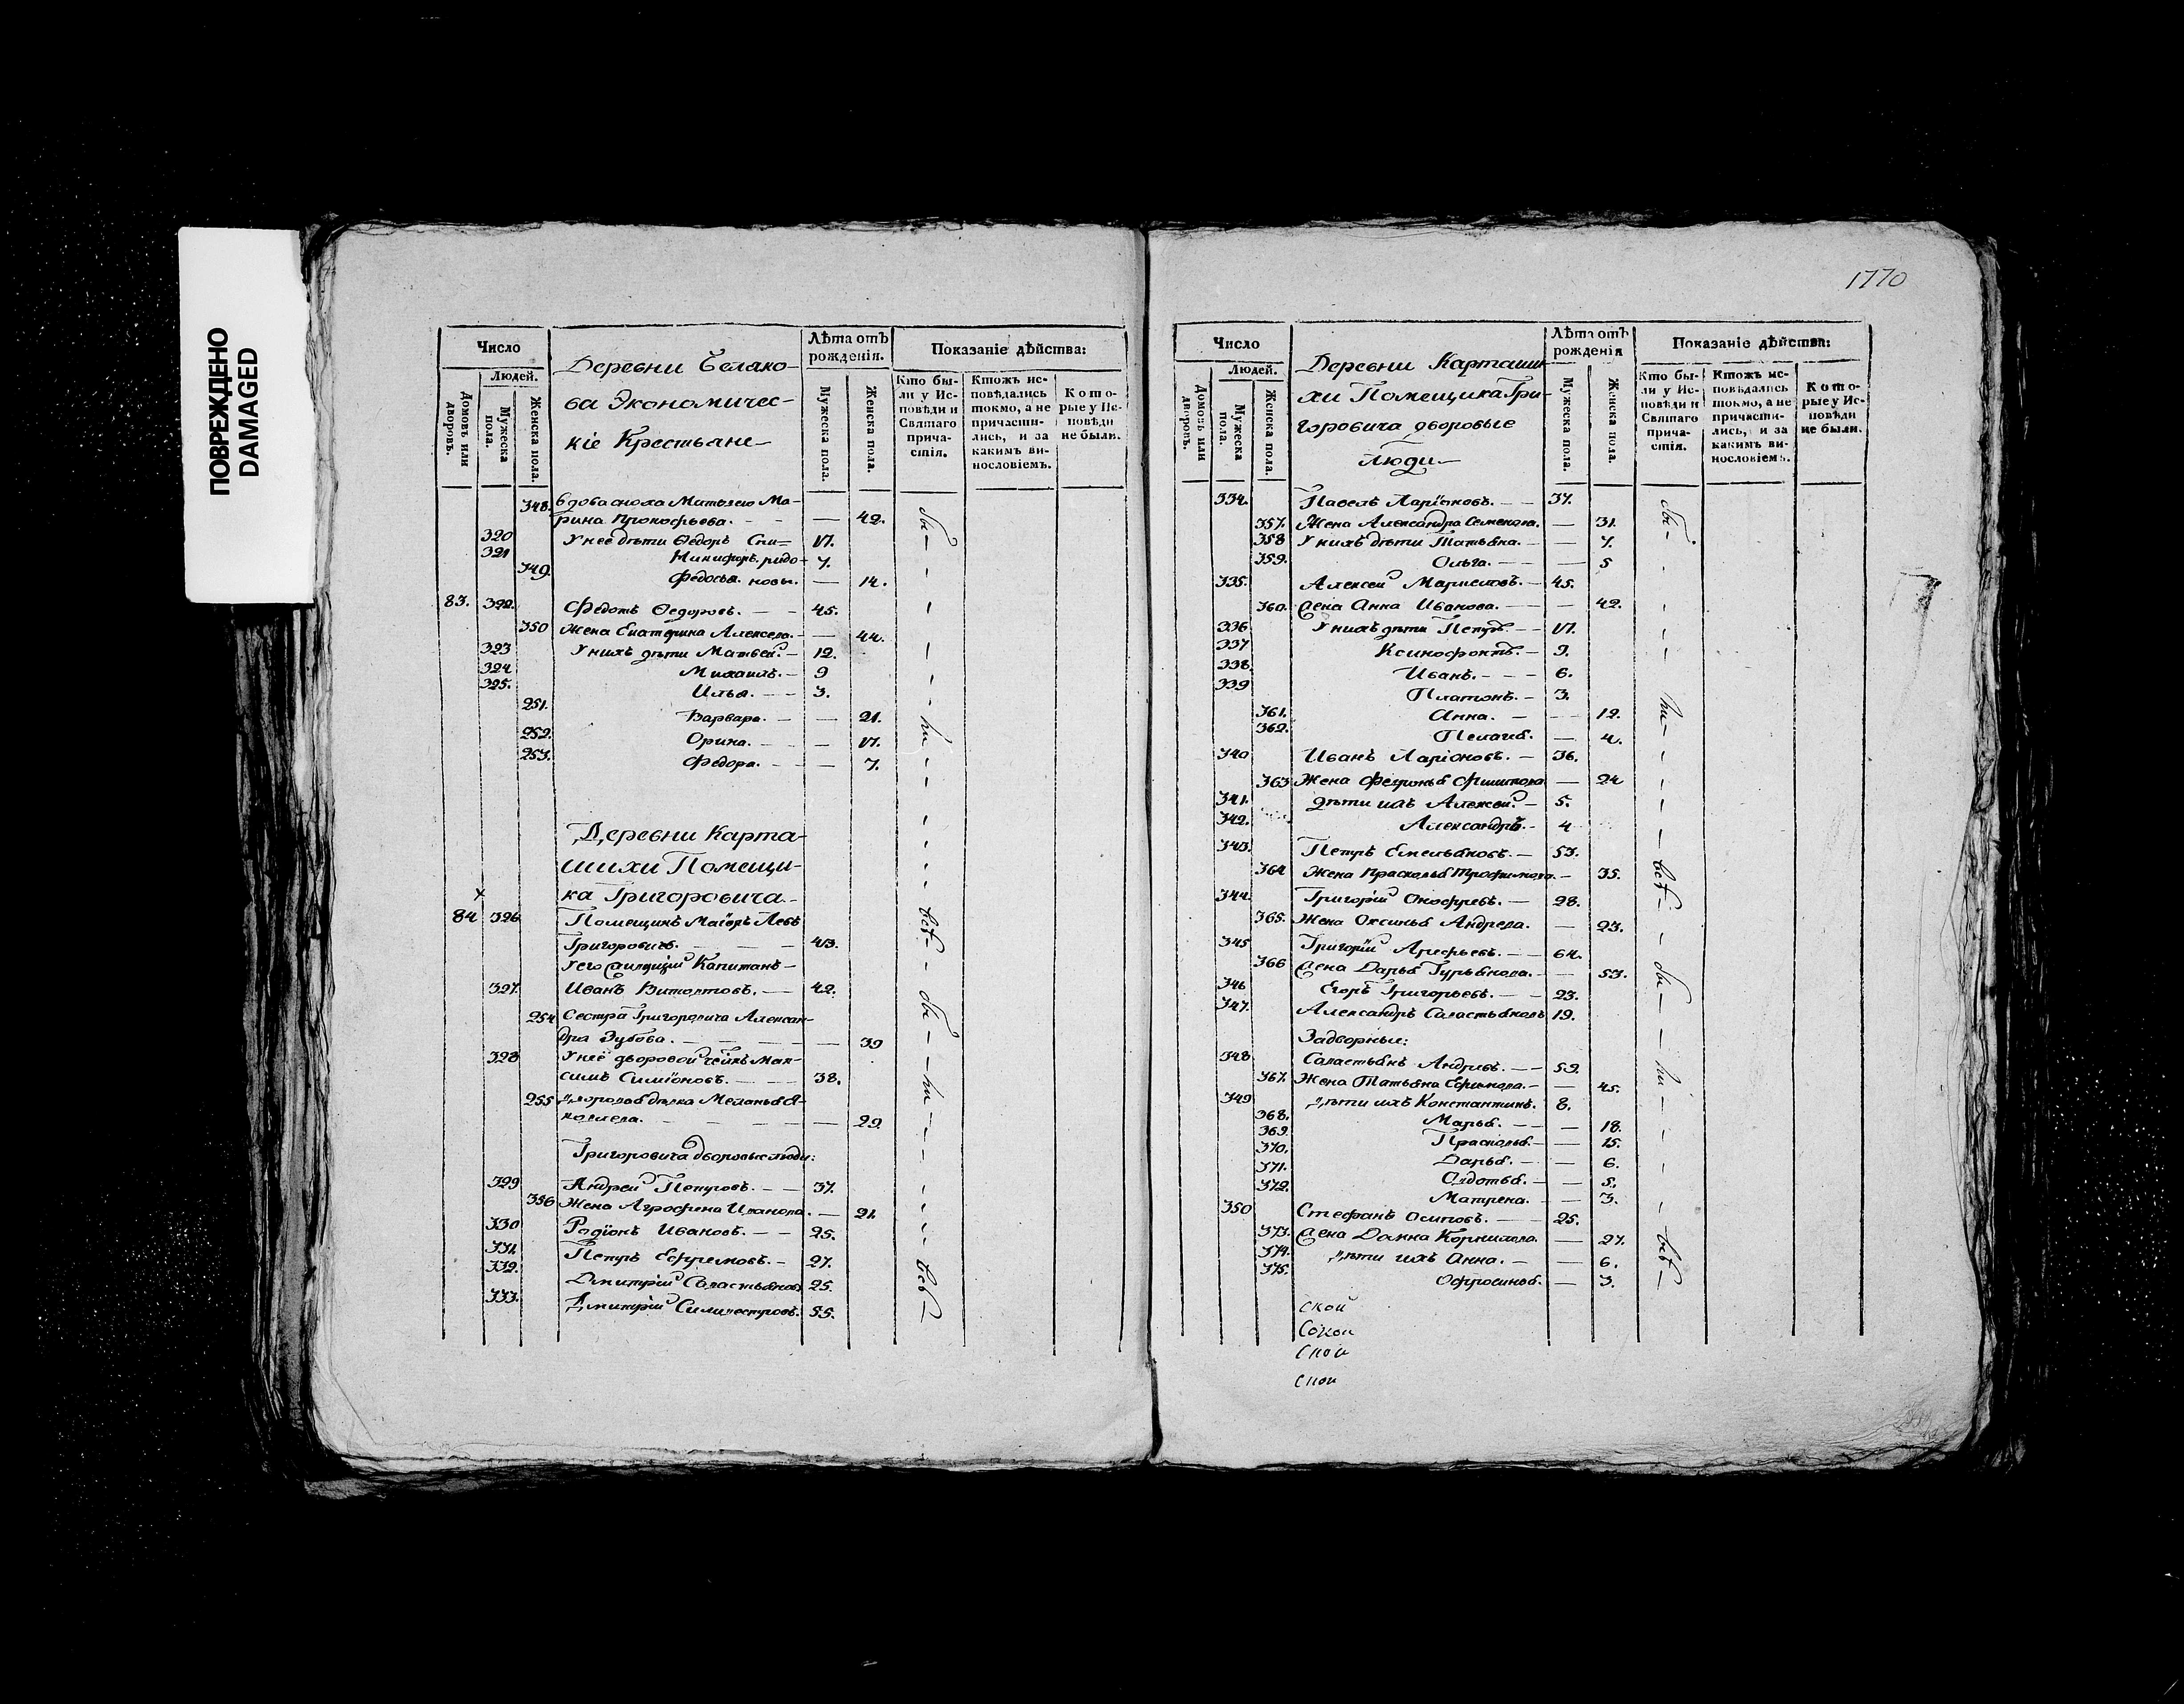 ПОВРЕЖДЕНО
DAMAGED
Число
Людей.
Домовъ или дворовъ.
Мужеска пола.
Женска пола.
Деревни Беляко-
ва Экономичес-
кіе Крестьяне
Лѣта отъ рожденія.
Мужеска пола.
Женска пола.
Показаніе дѣйства:
Кто бы-
ли у Ис-
повѣди и
Святаго
прича-
стія.
Ктожъ ис-
повѣдались
токмо, а не
причасти-
лись, и за
какимъ ви-
нословіемъ.
Кото-
рые у Ис-
повѣди
не были.
348. вдова сноха Матвею Ма-
рина Прокофьева. — 42.
320 У нее дѣти Ѳедоръ Спи= 17.
321 Никифоръ. ридо- 7.
349. Федосья. новы. — 14.
83. 322. Федотъ Ѳедоровъ. — 45.
350 Жена Екатерина Алексеева. — 44.
323 У нихъ дѣти Матвей. — 12.
324 Михаилъ. — 9
325. Илья. — 3.
251. Варвара. — 21.
252. Орина. — 17.
253. Федора. — 7.
Деревни Карта-
шихи Помещи-
ка Григоровича.
84 326 Помещикъ Маіоръ Левъ
Григоровичь. — 43.
У его Капитанъ —
327. Иванъ Витовтовъ. — 42.
254 Сестра Григоровича Алексан-
дра Зубова. — 39
328 У неё дворовой Мак-
симъ Симіоновъ. — 38.
255 дворовая дѣвка Меланья Я-
ковлева. — 29.
Григоровича дворовые люди:
329 Андрей Петровъ. — 37.
356 Жена Агрофена Иванова. — 21.
330 Радіонъ Ивановъ. — 25.
331. Петръ Ефремовъ. — 27.
332. Дмитрій Савастьяновъ 25.
333. Дмитрій Силивестровъ. 55.
бы — ли — всѣ — бы — ли — всѣ
1770
Число
Людей.
Домовъ или дворовъ.
Мужеска пола.
Женска пола.
Деревни Карташи-
хи Помещика Гри-
горовича дворовые
Люди
Лѣта отъ рожденія
Мужеска пола.
Женска пола.
Показаніе дѣйства:
Кто бы-
ли у Ис-
повѣди и
Святаго
прича-
стія.
Ктожъ ис-
повѣдались
токмо, а не
причасти-
лись, и за
какимъ ви-
нословіемъ.
Кото-
рые у Ис-
повѣди
не были.
334. Павелъ Ларіоновъ. — 37.
357. Жена Александра Семенова. — 31.
358 У нихъ дѣти Татьяна. — 7.
359. Ольга. — 5
335. Алексей — 45.
360. Жена Анна Иванова. — 42.
336 У нихъ дѣти Петръ. — 17.
337 Ксинофонтъ. — 9.
338. Иванъ. — 6.
339 Платонъ. — 3.
361. Анна. — 12.
362. Пелагея. — 4.
340 Иванъ Ларіоновъ. — 36.
363 Жена Филипова — 24
341. дѣти ихъ Алексей. — 5.
342. Александръ. — 4
343. Петръ Емельяновъ. — 53.
364 Жена Прасковья Трофимова. — 35.
344. Григорій Онофревъ. — 28.
365. Жена Оксинья Андреева. — 23.
345 Григорій Арефьевъ. — 64.
366 Жена Дарья Гурьянова. — 53.
346 Егоръ Григорьевъ. — 23.
347. Александръ Савастьяновъ 19.
Задворные:
348 Савастьянъ Андревъ. — 59.
367. Жена Татьяна Ефимова. — 45.
349 дѣти ихъ Константинъ. 8.
368. Марья. — 18.
369. Прасковья. — 15.
370. Дарья. — 6.
371. Авдотья. — 5.
372. Матрена. — 3.
350 Стефанъ Осиповъ. — 25.
373. Жена Домна Корнилова. — 27.
374. дѣти ихъ Анна. — 6.
375. Офросинья. — 3.
бы — ли — всѣ — бы — ли — всѣ —
Скои
Сокои
Скои
Скои